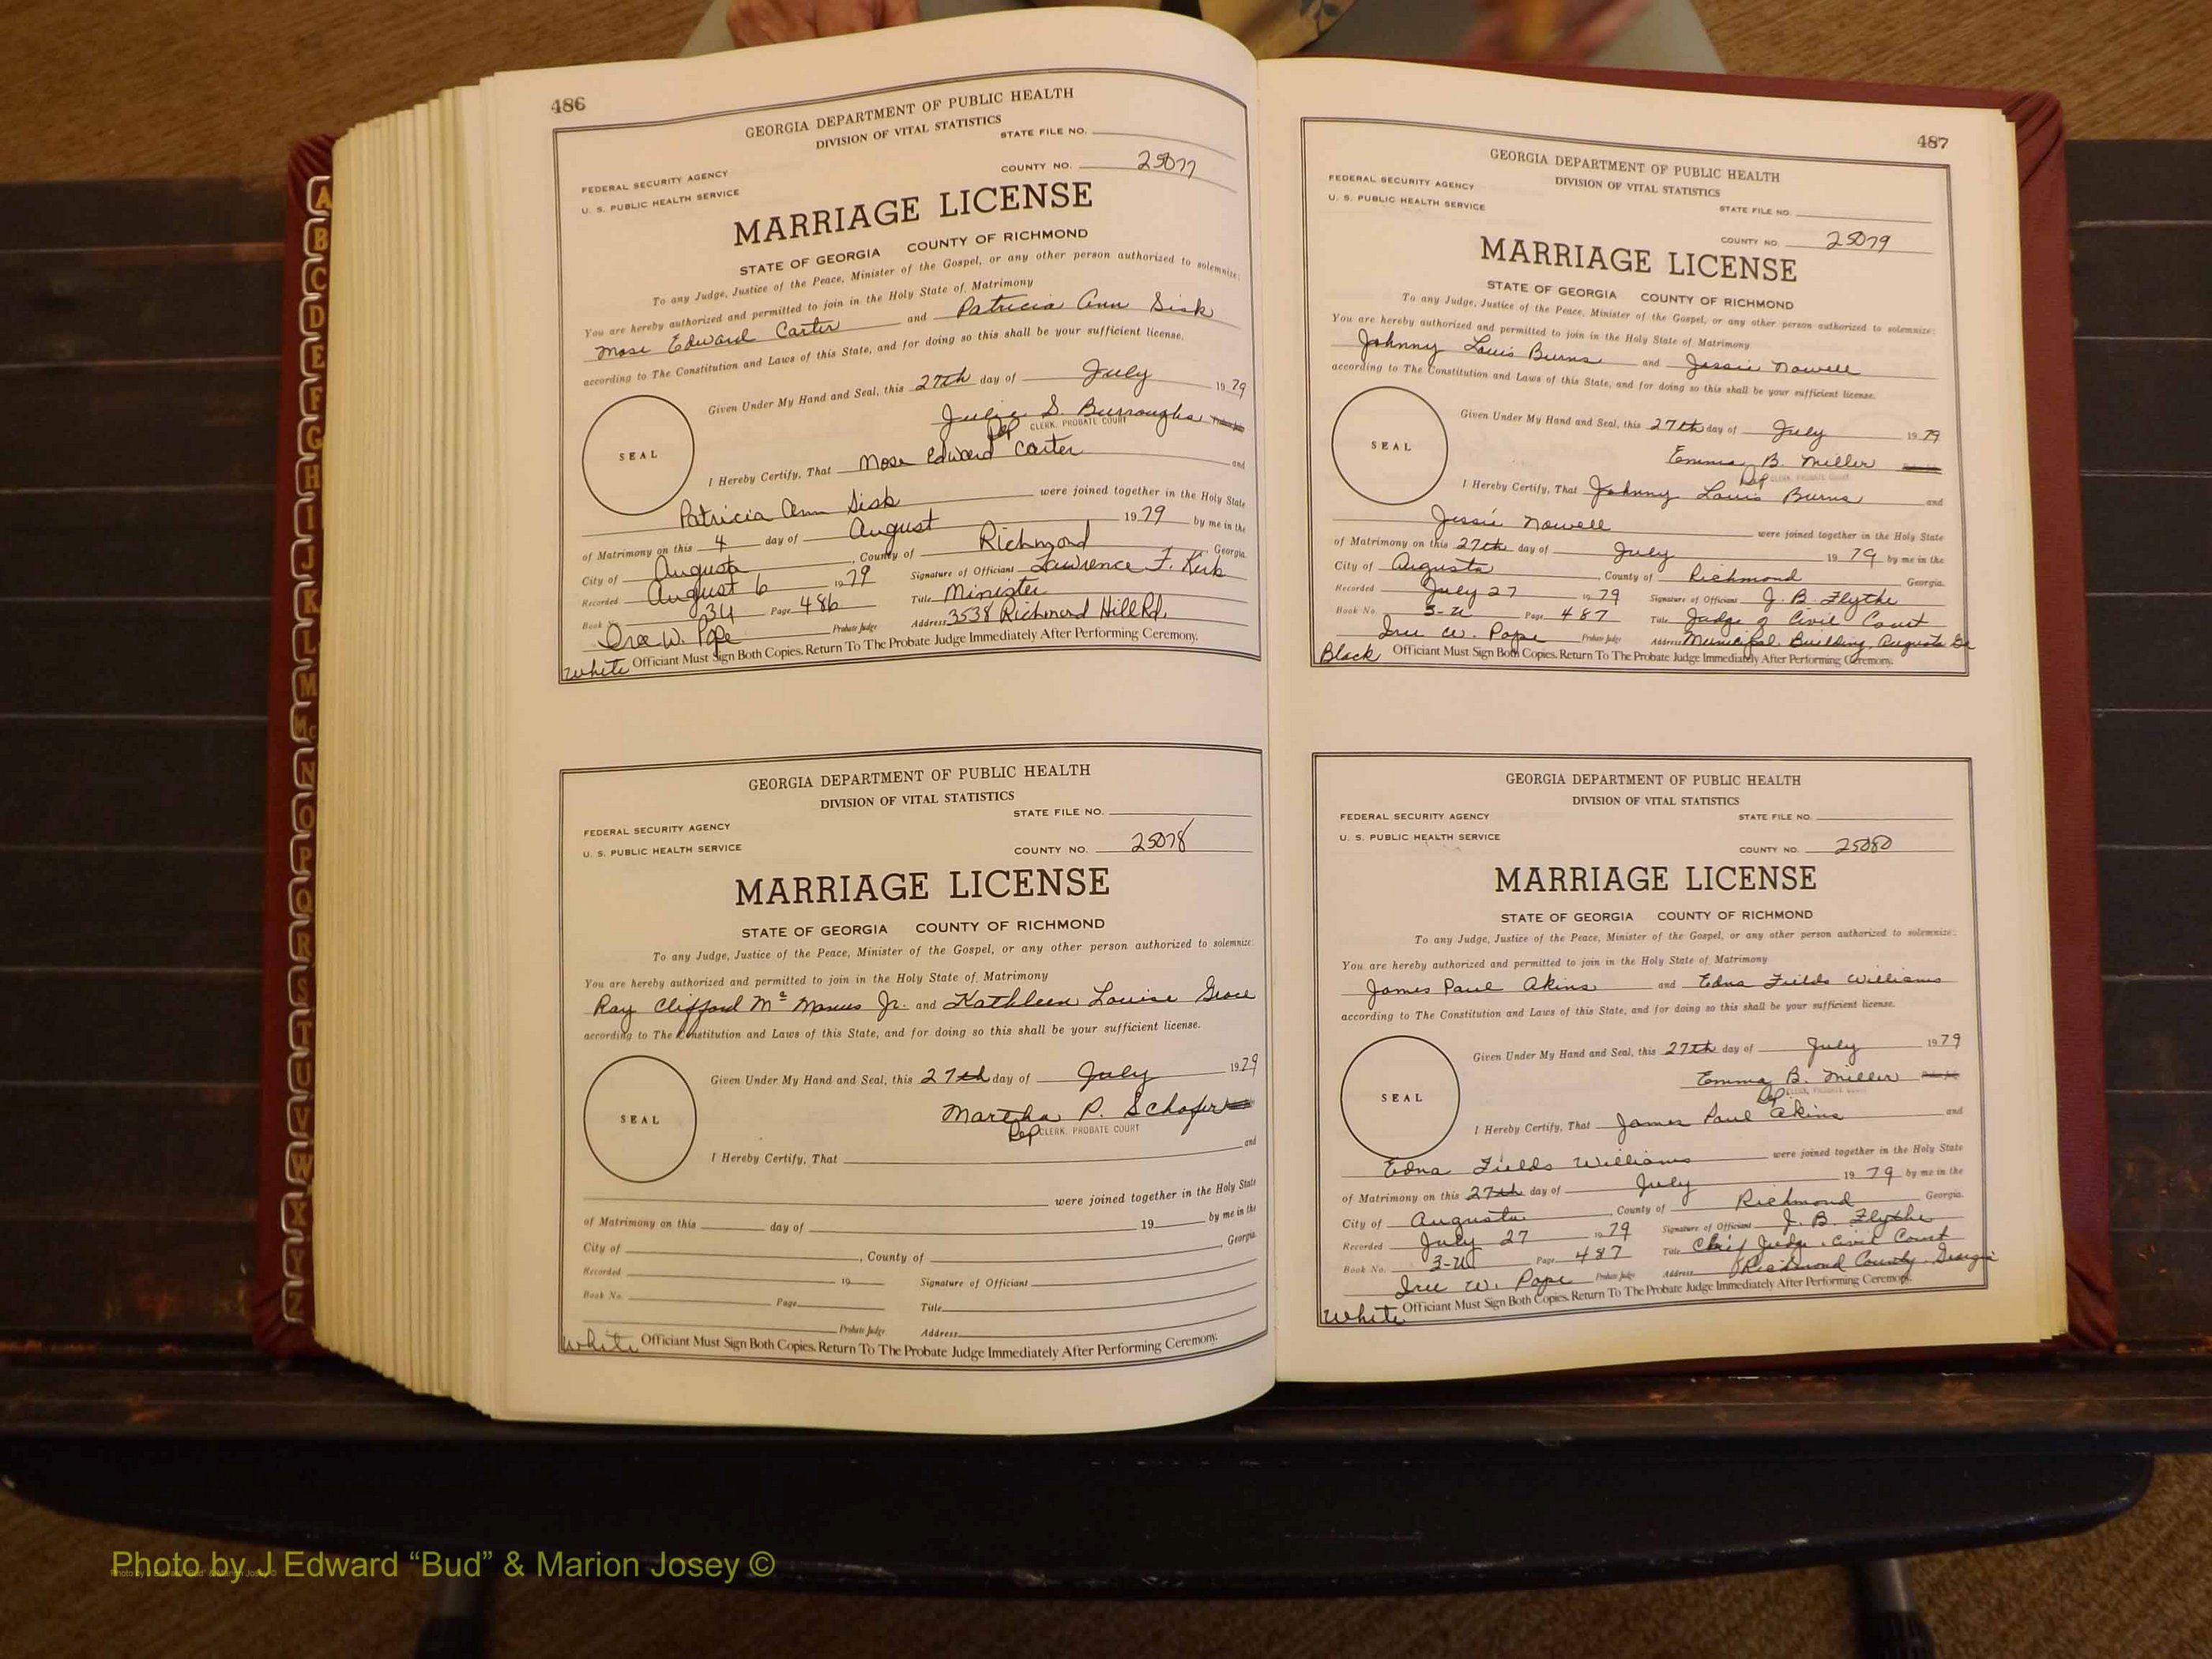 486
GEORGIA DEPARTMENT OF PUBLIC HEALTH
DIVISION OF VITAL STATISTICS
STATE FILE NO.
COUNTY NO. 25077
FEDERAL SECURITY AGENCY
U. S. PUBLIC HEALTH SERVICE
MARRIAGE LICENSE
STATE OF GEORGIA COUNTY OF RICHMOND
To any Judge, Justice of the Peace, Minister of the Gospel, or any other person authorized to solemnize:
You are hereby authorized and permitted to join in the Holy State of Matrimony
Mose Edward Carter and Patricia Ann Sisk
according to The Constitution and Laws of this State, and for doing so this shall be your sufficient license.
Given Under My Hand and Seal, this 27th day of July 1979
SEAL
Julie S. Burroughs
Dep CLERK, PROBATE COURT
I Hereby Certify, That Mose Edward Carter and
Patricia Ann Sisk were joined together in the Holy State
of Matrimony on this 4 day of August 1979 by me in the
City of Augusta, County of Richmond Georgia
Recorded August 6 1979 Signature of Officiant Lawrence F. Kirk
Book No. 3U Page 486 Title Minister
Address 3538 Richmond Hill Rd.
W. Pope Probate Judge
White Officiant Must Sign Both Copies. Return To The Probate Judge Immediately After Performing Ceremony.
GEORGIA DEPARTMENT OF PUBLIC HEALTH
DIVISION OF VITAL STATISTICS
STATE FILE NO.
FEDERAL SECURITY AGENCY
U. S. PUBLIC HEALTH SERVICE
COUNTY NO. 25078
MARRIAGE LICENSE
STATE OF GEORGIA COUNTY OF RICHMOND
To any Judge, Justice of the Peace, Minister of the Gospel, or any other person authorized to solemnize:
You are hereby authorized and permitted to join in the Holy State of Matrimony
Ray Clifford McManus Jr. and Kathleen Louise Grace
according to The Constitution and Laws of this State, and for doing so this shall be your sufficient license.
Given Under My Hand and Seal, this 27th day of July 1979
SEAL
Martha P. Schafer
Dep CLERK, PROBATE COURT
I Hereby Certify, That and
were joined together in the Holy State
of Matrimony on this day of 19 by me in the
City of , County of Georgia
Recorded 19 Signature of Officiant
Book No. Page Title
Probate Judge Address
White Officiant Must Sign Both Copies. Return To The Probate Judge Immediately After Performing Ceremony.
487
GEORGIA DEPARTMENT OF PUBLIC HEALTH
DIVISION OF VITAL STATISTICS
FEDERAL SECURITY AGENCY
U. S. PUBLIC HEALTH SERVICE
STATE FILE NO.
COUNTY NO. 25079
MARRIAGE LICENSE
STATE OF GEORGIA COUNTY OF RICHMOND
To any Judge, Justice of the Peace, Minister of the Gospel, or any other person authorized to solemnize:
You are hereby authorized and permitted to join in the Holy State of Matrimony
Johnny Louis Burns and Jessie Nowell
according to The Constitution and Laws of this State, and for doing so this shall be your sufficient license.
Given Under My Hand and Seal, this 27th day of July 1979
SEAL
Emma B. Miller
Dep CLERK, PROBATE COURT
I Hereby Certify, That Johnny Louis Burns and
Jessie Nowell were joined together in the Holy State
of Matrimony on this 27th day of July 1979 by me in the
City of Augusta, County of Richmond Georgia
Recorded July 27 1979 Signature of Officiant J. B. Flythe
Book No. 3-U Page 487 Title Judge of Civil Court
W. Pope Probate Judge Address Municipal Building, Augusta Ga
Black Officiant Must Sign Both Copies. Return To The Probate Judge Immediately After Performing Ceremony.
GEORGIA DEPARTMENT OF PUBLIC HEALTH
DIVISION OF VITAL STATISTICS
FEDERAL SECURITY AGENCY STATE FILE NO.
U. S. PUBLIC HEALTH SERVICE
COUNTY NO. 25080
MARRIAGE LICENSE
STATE OF GEORGIA COUNTY OF RICHMOND
To any Judge, Justice of the Peace, Minister of the Gospel, or any other person authorized to solemnize:
You are hereby authorized and permitted to join in the Holy State of Matrimony
James Paul Akins and Edna Fields Williams
according to The Constitution and Laws of this State, and for doing so this shall be your sufficient license.
Given Under My Hand and Seal, this 27th day of July 1979
SEAL
Emma B. Miller
Dep CLERK, PROBATE COURT
I Hereby Certify, That James Paul Akins and
Edna Fields Williams were joined together in the Holy State
of Matrimony on this 27th day of July 1979 by me in the
City of Augusta, County of Richmond Georgia
Recorded July 27 1979 Signature of Officiant J. B. Flythe
Book No. 3-U Page 487 Title Chief Judge, Civil Court
W. Pope Probate Judge Address Richmond County, Georgia
White Officiant Must Sign Both Copies. Return To The Probate Judge Immediately After Performing Ceremony.
A
B
C
D
E
F
G
H
I
J
K
L
M
Mc
N
O
P
Q
R
S
T
U
V
W
X
Y
Z
Photo by J Edward “Bud” & Marion Josey ©
Photo by J Edward “Bud” & Marion Josey ©